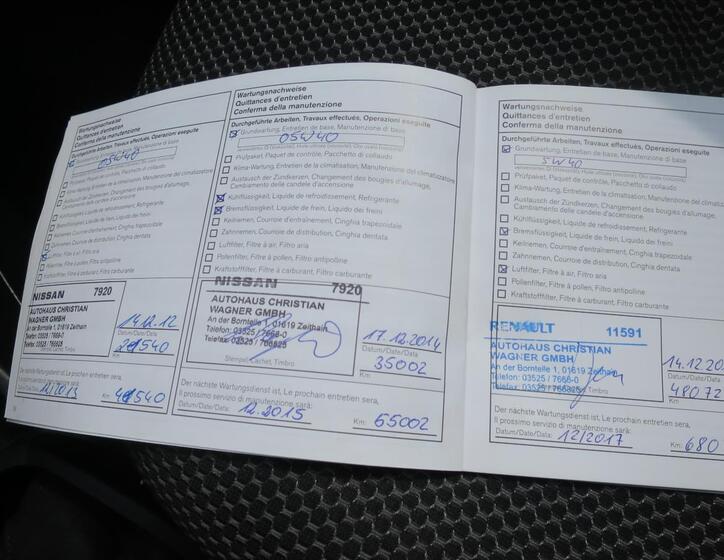 Wartungsnachweise
Quittances d'entretien
Conferma della manutenzione
Durchgeführte Arbeiten, Travaux effectués, Operazioni eseguite
05W40
Prüfpaket, Paquet de contrôle, Pacchetto di collaudo
Klima-Wartung, Entretien de la climatisation, Manutenzione del climatizzatore
Keilriemen, Courroie d'entraînement, Cinghia trapezoidale
Zahnriemen, Courroie de distribution, Cinghia dentata
Luftfilter, Filtre à air, Filtro aria
Pollenfilter, Filtre à pollen, Filtro antipolline
Kraftstofffilter, Filtre à carburant, Filtro carburante
NISSAN 7920
AUTOHAUS CHRISTIAN
WAGNER GMBH
An der Bornteile 1, 01619 Zeithain
Telefon: 03525 / 7668-0
14.12.12
Datum/Date/Data:
Km
12/2013
Wartungsnachweise
Quittances d'entretien
Conferma della manutenzione
Durchgeführte Arbeiten, Travaux effectués, Operazioni eseguite
Grundwartung, Entretien de base, Manutenzione di base
05W40
Prüfpaket, Paquet de contrôle, Pacchetto di collaudo
Klima-Wartung, Entretien de la climatisation, Manutenzione del climatizzatore
Austausch der Zündkerzen, Changement des bougies d'allumage,
Cambiamento delle candele d'accensione
Kühlflüssigkeit, Liquide de refroidissement, Refrigerante
Bremsflüssigkeit, Liquide de frein, Liquido dei freini
Keilriemen, Courroie d'entraînement, Cinghia trapezoidale
Zahnriemen, Courroie de distribution, Cinghia dentata
Luftfilter, Filtre à air, Filtro aria
Pollenfilter, Filtre à pollen, Filtro antipolline
Kraftstofffilter, Filtre à carburant, Filtro carburante
NISSAN 7920
AUTOHAUS CHRISTIAN
WAGNER GMBH
An der Bornteile 1, 01619 Zeithain
Telefon: 03525 / 7668-0
Telefax: 03525 / 766825
Stempel, Cachet, Timbro
17.12.2014
Datum/Date/Data:
35002
Km
Der nächste Wartungsdienst ist, Le prochain entretien sera,
Il prossimo servizio di manutenzione sarà:
Datum/Date/Data: 12.2015 Km: 65002
Wartungsnachweise
Quittances d'entretien
Conferma della manutenzione
Durchgeführte Arbeiten, Travaux effectués, Operazioni eseguite
Grundwartung, Entretien de base, Manutenzione di base
5W40
Prüfpaket, Paquet de contrôle, Pacchetto di collaudo
Klima-Wartung, Entretien de la climatisation, Manutenzione del
Austausch der Zündkerzen, Changement des bougies d'allumage,
Cambiamento delle candele d'accensione
Kühlflüssigkeit, Liquide de refroidissement, Refrigerante
Bremsflüssigkeit, Liquide de frein, Liquido dei freni
Keilriemen, Courroie d'entraînement, Cinghia trapezoidale
Zahnriemen, Courroie de distribution, Cinghia dentata
Luftfilter, Filtre à air, Filtro aria
Pollenfilter, Filtre à pollen, Filtro antipolline
Kraftstofffilter, Filtre à carburant, Filtro carburante
RENAULT 11591
AUTOHAUS CHRISTIAN
WAGNER GMBH
An der Bornteile 1, 01619 Zeithain
Telefon: 03525 / 7668-0
Telefax: 03525 / 766825
14.12.20
Datum/Date/Data:
48072
Km
Der nächste Wartungsdienst ist, Le prochain entretien sera,
Il prossimo servizio di manutenzione sarà:
Datum/Date/Data: 12/2017 Km: 680